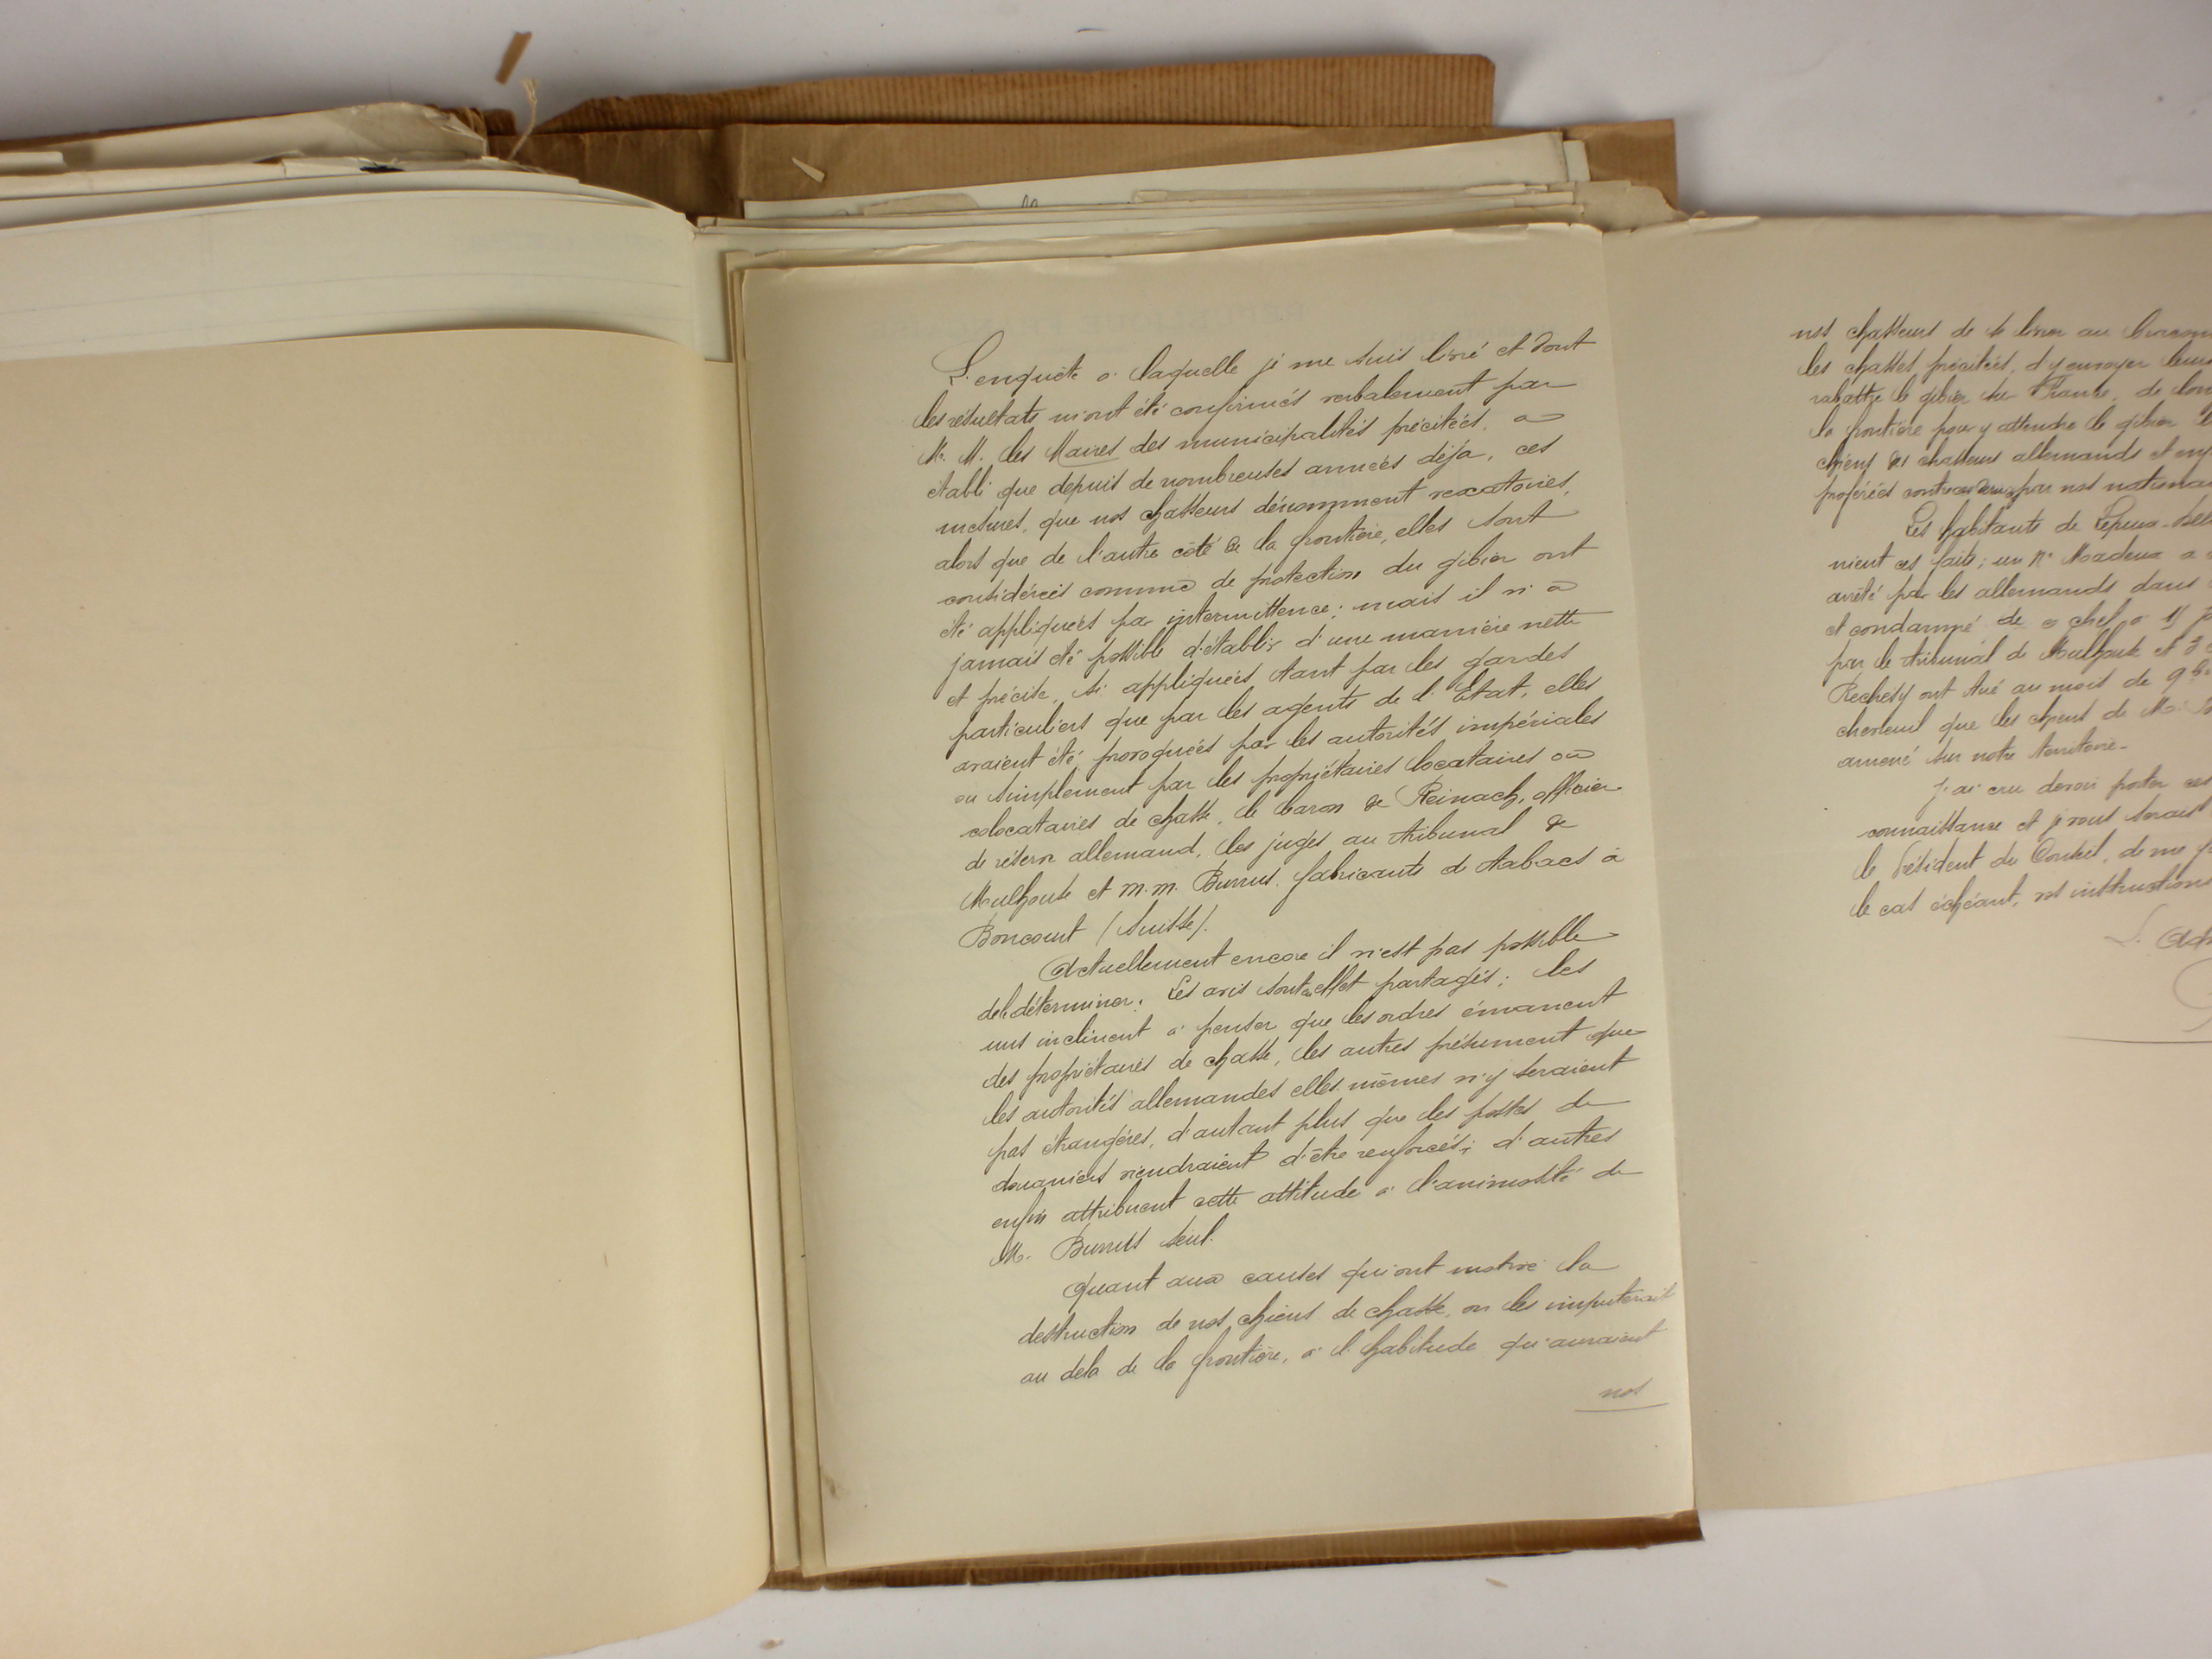 L'enquête à laquelle je me suis livré et dont
les résultats m'ont été confirmés verbalement par
M. M. les Maires des municipalités précitées, a
établi que depuis de nombreuses années déjà, ces
mesures, que nos chasseurs dénomment vexatoires,
alors que de l'autre côté de la frontière, elles sont
considérées comme de protection du gibier ont
été appliquées par intermittence; mais il n'a
jamais été possible d'établir d'une manière nette
et précise, si appliquées tant par les gardes
particuliers que par les agents de l'Etat, elles
avaient été provoquées par les autorités impériales
ou simplement par les propriétaires locataires ou
colocataires de chasse, le baron de Reinach, officier
de réserve allemand, les juges au tribunal de
Mulhouse et M.M. Burrus, fabricants de tabacs à
Boncourt (Suisse).
Actuellement encore il n'est pas possible
de le déterminer. Les avis sont en effet partagés; les
uns inclinent à penser que les ordres émanent
des propriétaires de chasse, les autres présument que
les autorités allemandes elles-mêmes n'y seraient
pas étrangères, d'autant plus que les postes de
douaniers viendraient d'être renforcés; d'autres
enfin attribuent cette attitude à l'animosité de
M. Burrus seul.
Quant aux causes qui ont motivé la
destruction de nos chiens de chasse, on les imputerait
au delà de la frontière, à l'habitude qu'auraient
nos
nos chasseurs de se livrer au
les chasses précitées, d'y envoyer leurs
rabattre le gibier sur France, de
la frontière pour y attendre le gibier
chiens des chasseurs allemands et
proférées contre par nos nationaux
Les habitants de Lepuix-
nient ces faits; un Mr Madeux a
arrêté par les allemands dans
et condamné de ce chef à
par le tribunal de Mulhouse et 3
Rechésy ont tué au mois de 9bre
chevreuil que les chiens de M.
amené sur notre territoire.
J'ai cru devoir porter ces
connaissance et je vous serais
le Président du Conseil, de me
le cas échéant, vos instructions